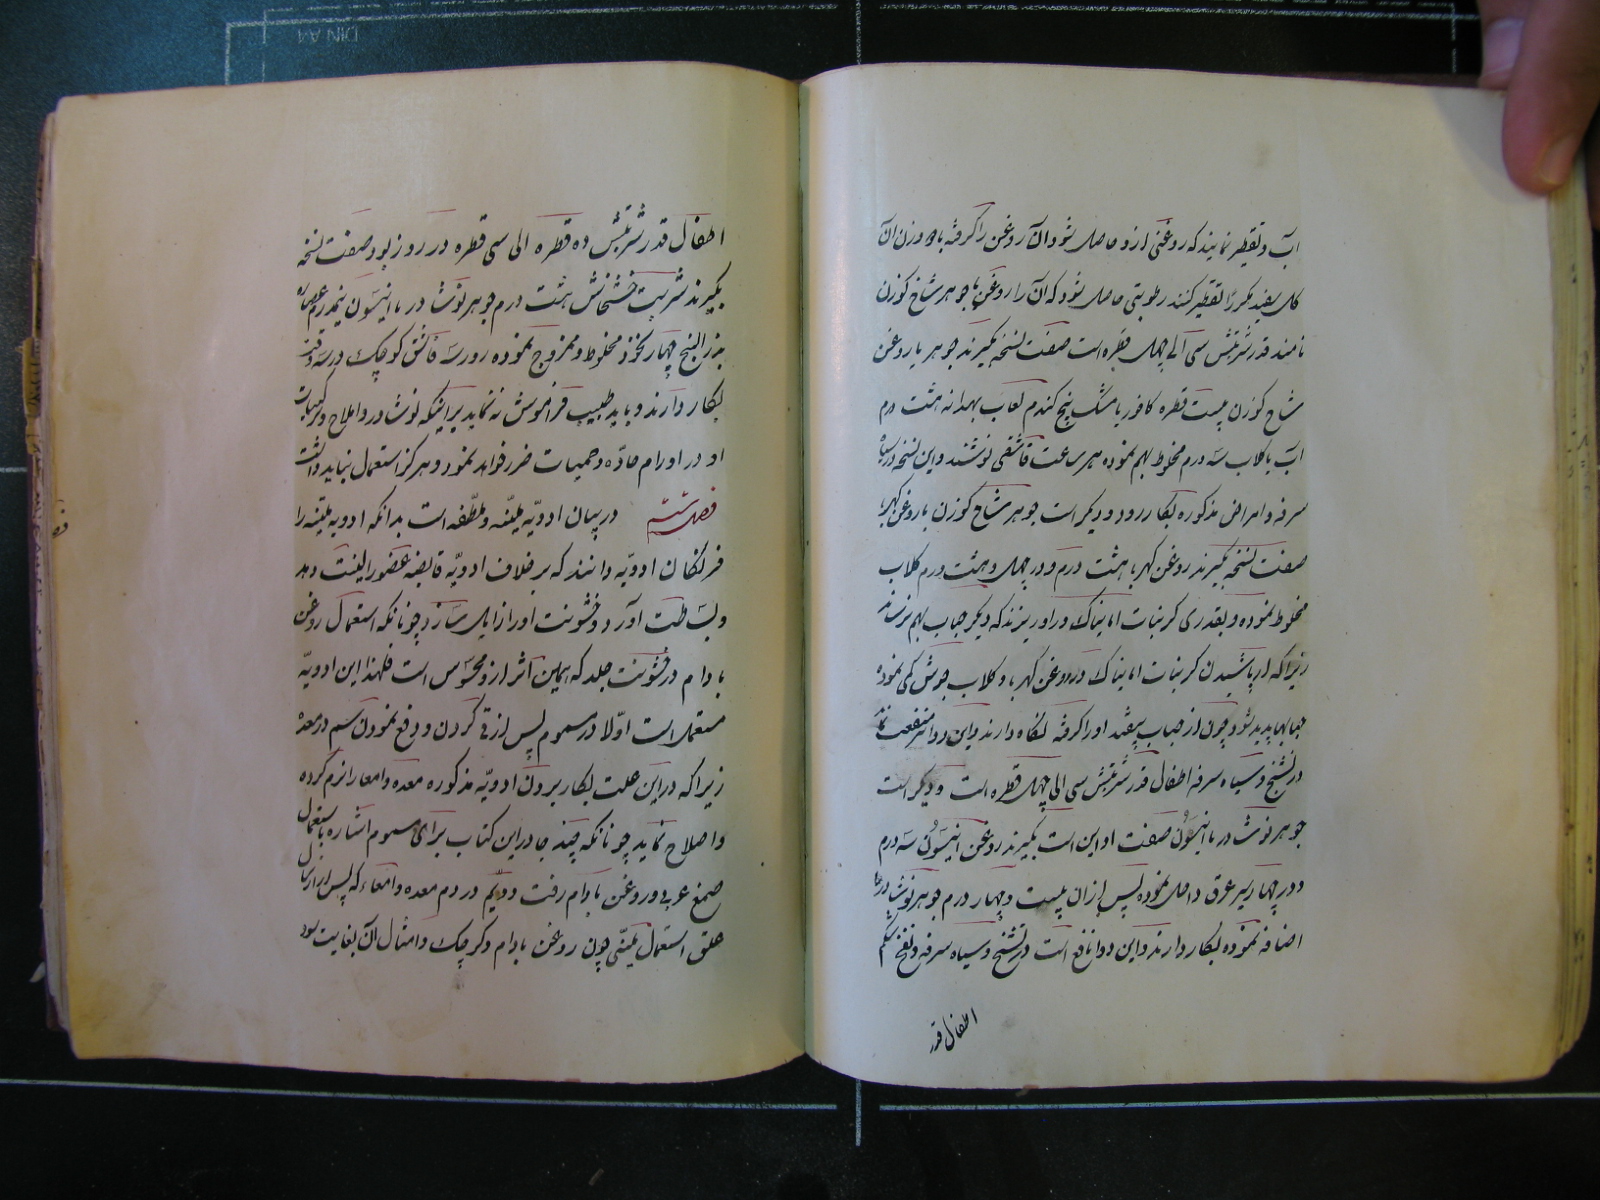 آب و تقطیر نمایند که روغنی ازو حاصل شود و آن روغن را گرفته با وزن آن
کل سفید مکررا تقطیر کنند رطوبتی حاصل شود که آن را روغن یا جوهر شاخ کوزن
نامند قدر شربتش سی الی چهل قطره است صفت نسخه بگیرند جوهر یا روغن
شاخ کوزن بیست قطره کافور یا مشک پنج کندم لعاب بهدانه هشت درم
آب یا کلاب سه درم مخلوط بهم نموده هر ساعت قاشقی نوشند و این نسخه در سیاه
سرفه و امراض مذکوره بکار رود و دیکر است جوهر شاخ کوزن با روغن کهربا
صفت نسخه بگیرند روغن کهربا هشت درم و در چهل و هشت درم کلاب
مخلوط نموده و بقدری کربنات امانیاک در او ریزند که دیکر حباب بهم نرساند
زیرا که از پاشیدن کربنات امانیاک در روغن کهربا و کلاب جوش کمی نموده
حبابها پدید شود و چون از حباب بیفتد او را گرفته نکاه دارند و این دوا منفعت
در تشنج و سیاه سرفه اطفال قدر شربتش سی الی چهل قطره است و دیکر است
جوهر نوشادر با انیسون صفت او این است بگیرند روغن انیسون سه درم
و در چهار سیر عرق داخل نموده پس از آن بیست و چهار درم جوهر نوشادر
اضافه نموده بکار دارند و این دوا نافع است در تشنج و سیاه سرفه و نفخ شکم
اطفال قدر
اطفال قدر شربتش ده قطره الی سی قطره در روز بود صفت نسخه
بگیرند شربت خشخاش هشت درم جوهر نوشادر با انیسون نیمدرم عصاره
بذر البنج چهار نخود مخلوط و ممزوج نموده روزی سه قاشق کوچک در سه وقت
بکار دارند و باید طبیب فراموش نه نماید برای اینکه نوشادر و املاح و ترکیبات
او در اورام حاده و حمیات ضرر خواهد نمود و هرگز استعمال نباید داشت
فصل ششم در بیان ادویه ملینه و ملطفه است بدانکه ادویه ملینه را
فرنکان ادویه دانند که بر خلاف ادویه قابضه عضو را لینت دهد
و بساطت آورد و خشونت او را زایل سازد چونانکه استعمال روغن
بادام در خشونت جلد که همین اثر ازو محسوس است فلهذا این ادویه
مستعمل است اولا در سموم پس از قی کردن و دفع نمودن سم در معده
زیرا که در این علت بکار بردن ادویه مذکوره معده و امعا را نرم کرده
و اصلاح نماید چونانکه چند جا در این کتاب برای سموم اشاره باستعمال
صمغ عربی و روغن بادام رفت دویم در دم معده و امعاء که پس از ارسال
علق استعمال ملینی چون روغن بادام و کرچک و امثال آن بغایت بود